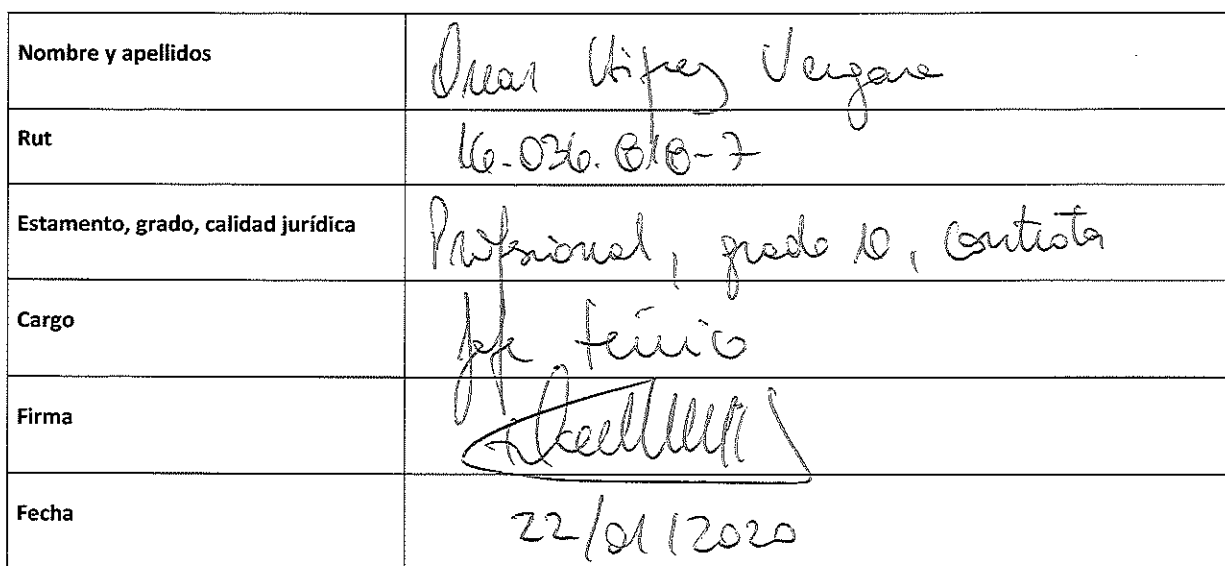 Nombre y apellidos Vergara
Rut 16-036.818-7
Estamento, grado, calidad jurídica Profesional, grado 10, contrata
Cargo Jefe técnico
Firma
Fecha 22/01/2020